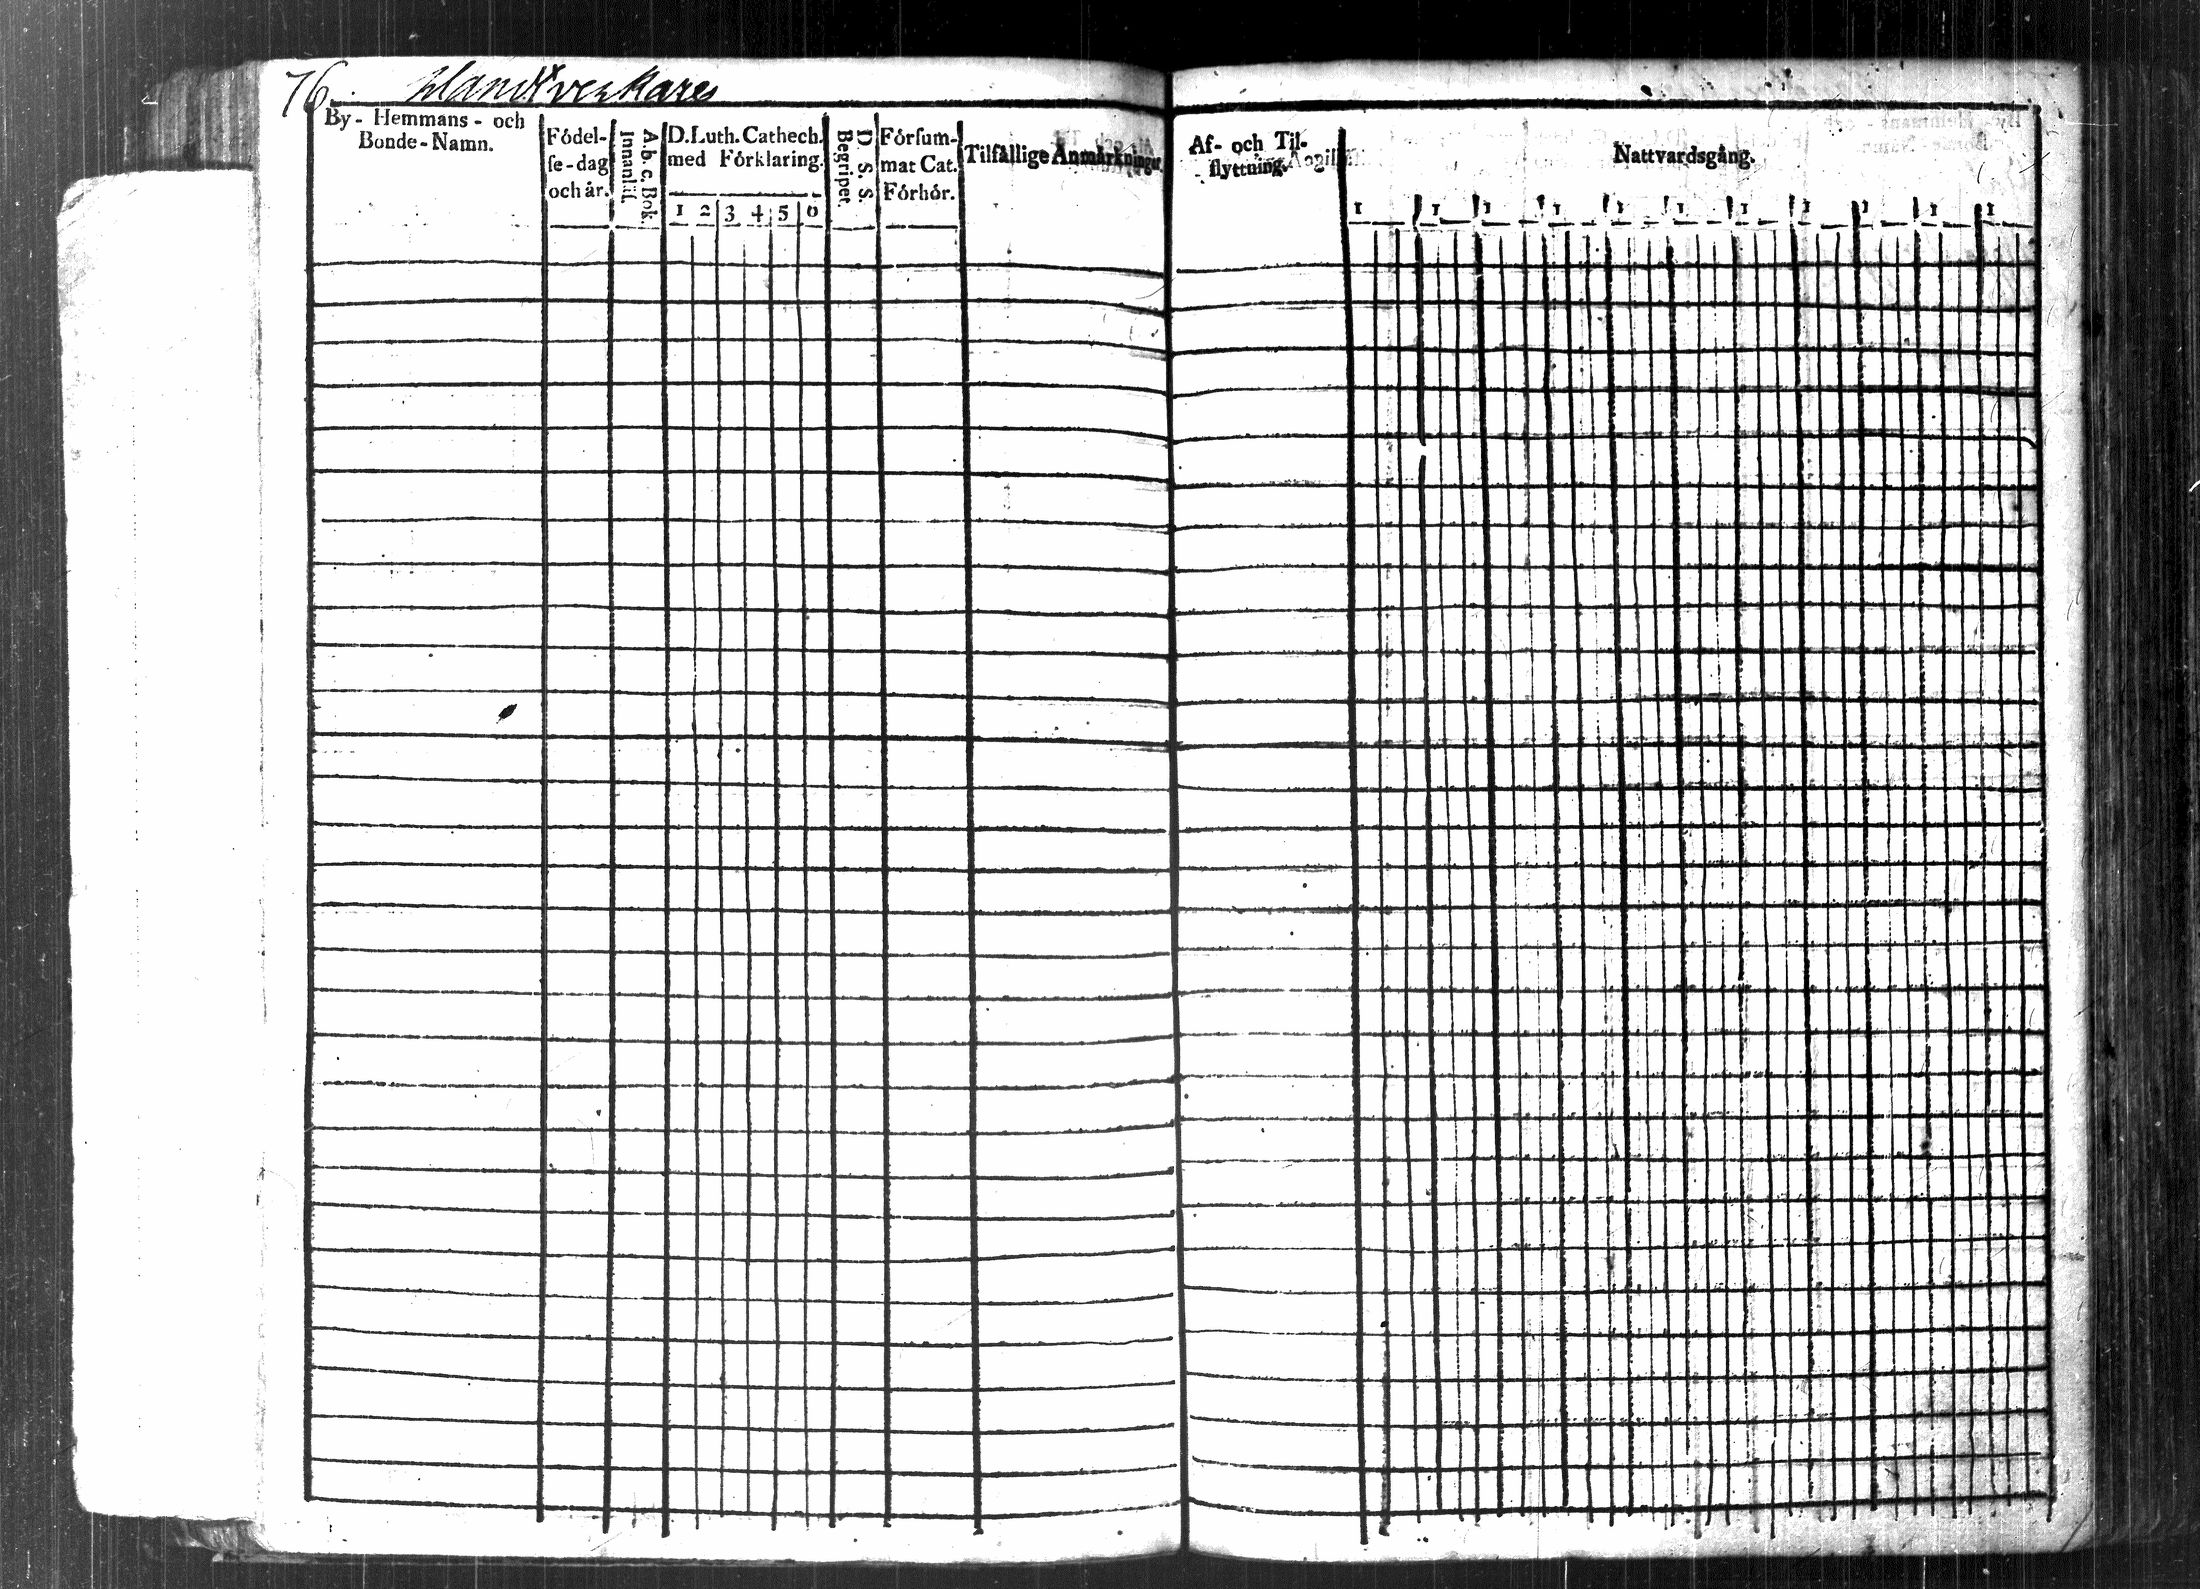 76. Handtverkare
By- Hemmans- och
Bonde-Namn.
Födel-
se-dag
och år.
A. b. c. Bok.
Innanläs.
D. Luth. Cathech.
med Förklaring.
1 2 3 4 5 6
D. S. S.
Begripet.
Försum-
mat Cat.
Förhör.
Tilfällige Anmärkningar.
Af- och Til-
flyttning.
Nattvardsgång.
1 1 1 1 1 1 1 1 1 1 1